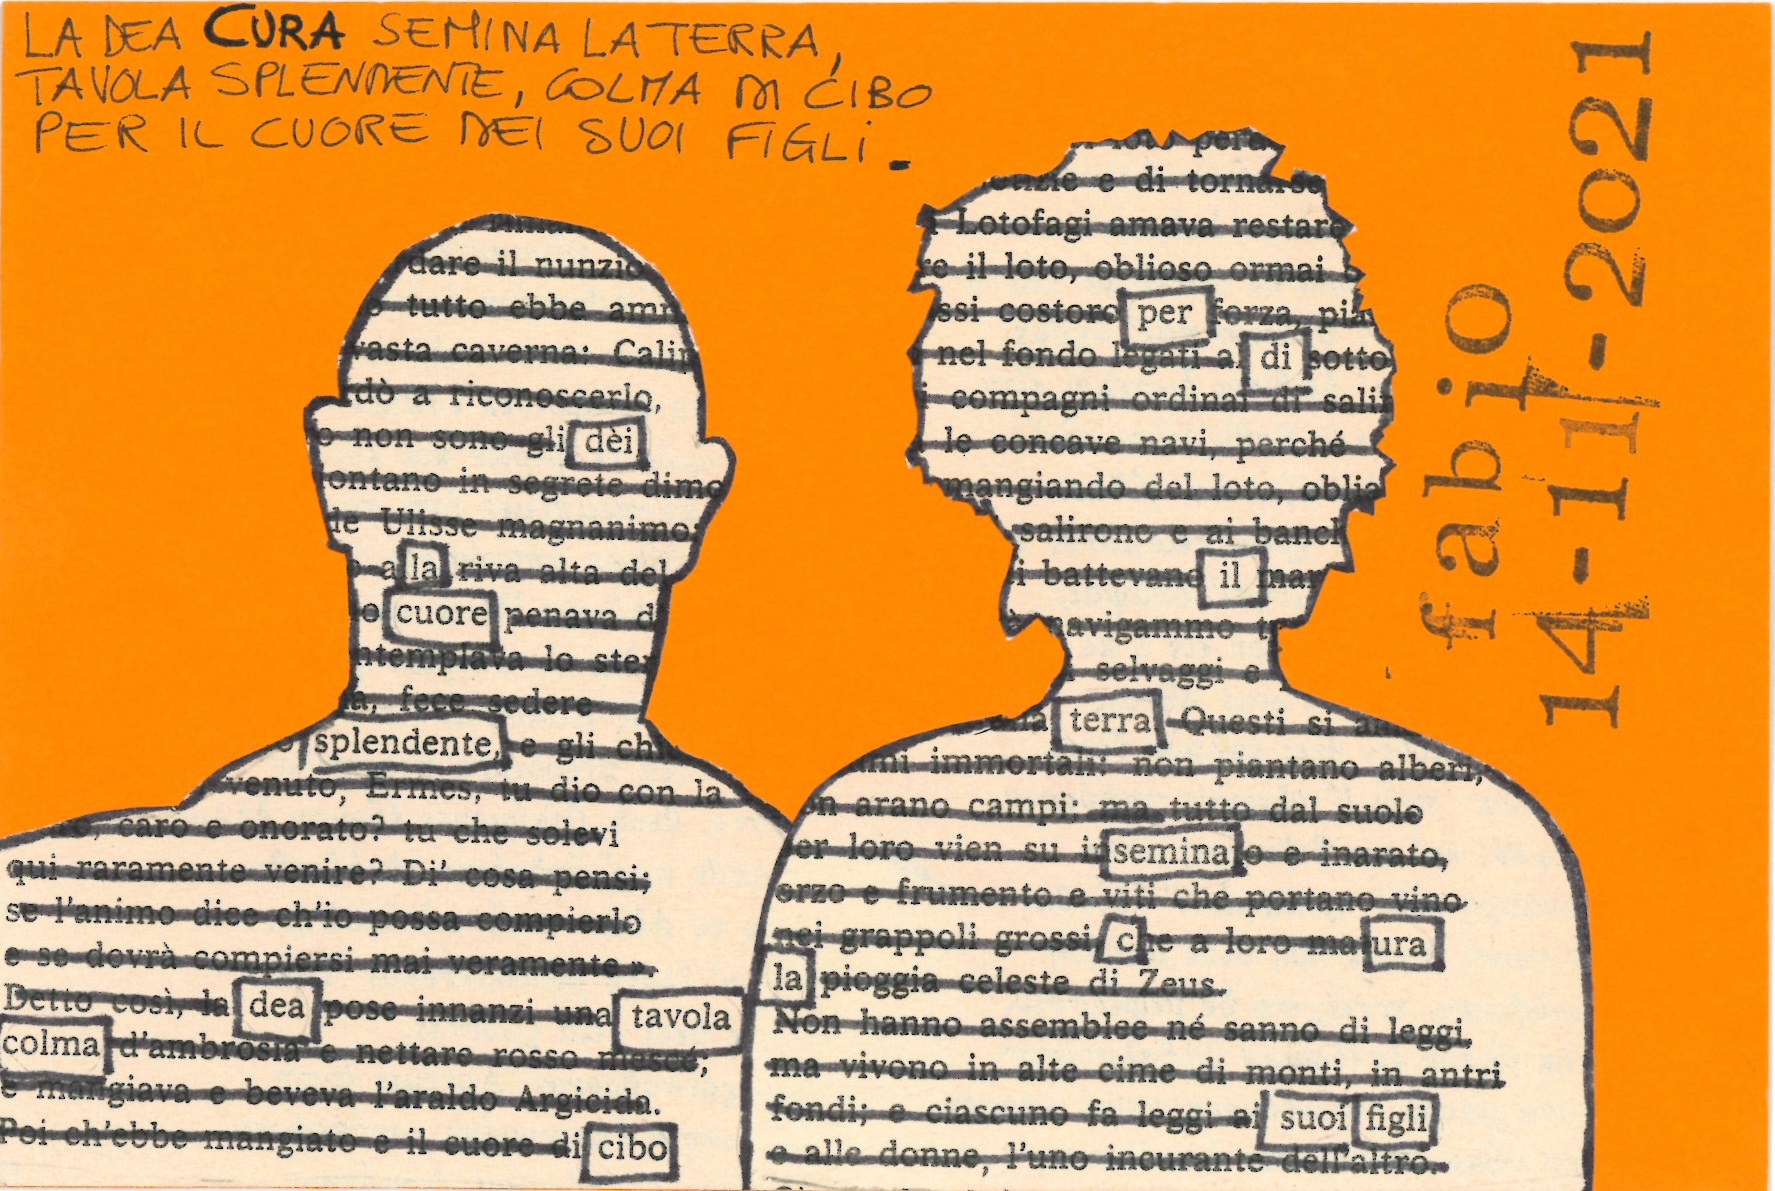 LA DEA CURA SEMINA LA TERRA,
TAVOLA SPLENDENTE, COLMA DI CIBO
PER IL CUORE DEI SUOI FIGLI.
dare il nunzio
tutto ebbe
vasta caverna: Calip
dò a riconoscerlo,
non sono gli dèi
ontano in segrete dimo
de Ulisse magnanimo:
a la riva alta del
cuore penava
ntemplava lo ster
fece sedere
splendente, e gli
venuto, Ermes, tu dio con la
caro e onorato? tu che solevi
qui raramente venire? Di' cosa pensi;
se l'animo dice ch'io possa compierlo
e se dovrà compiersi mai veramente ».
Detto così, la dea pose innanzi una tavola
colma d'ambrosia e nettare rosso mescé;
e mangiava e beveva l'araldo Argicida.
Poi ch'ebbe mangiato e il cuore di cibo
loto pera
notizie e di tornarse
Lotofagi amava restare
re il loto, oblioso ormai
ssi costoro per forza,
nel fondo legati al di sotto
compagni ordinai di salir
le concave navi, perché
mangiando del loto, oblia
salirono e ai banch
battevano il mar
navigammo
selvaggi e
terra Questi si
immortali: non piantano alberi,
on arano campi; ma tutto dal suolo
per loro vien su inseminato e inarato,
orzo e frumento e viti che portano vino
nei grappoli grossi, che a loro matura
la pioggia celeste di Zeus.
Non hanno assemblee né sanno di leggi,
ma vivono in alte cime di monti, in antri
fondi; e ciascuno fa leggi ai suoi figli
e alle donne, l'uno incurante dell'altro.
fabio
14-11-2021